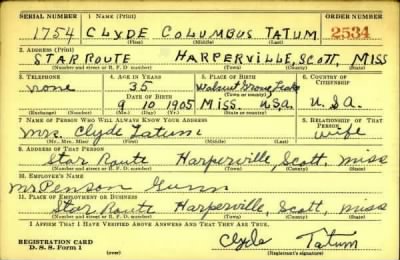 SERIAL NUMBER 1. NAME (Print) ORDER NUMBER
1754 CLYDE COLUMBUS TATUM 2534
(First) (Middle) (Last)
2. ADDRESS (Print)
STAR ROUTE HARPERVILLE, SCOTT, MISS
(Number and street or R. F. D. number) (Town) (County) (State)
3. TELEPHONE 4. AGE IN YEARS 5. PLACE OF BIRTH 6. COUNTRY OF CITIZENSHIP
none 35 Walnut Grove, Leake
DATE OF BIRTH (Town or county)
9 10 1905 Miss. U.S.A. U.S.A.
(Exchange) (Number) (Mo.) (Day) (Yr.) (State or country)
7. NAME OF PERSON WHO WILL ALWAYS KNOW YOUR ADDRESS 8. RELATIONSHIP OF THAT PERSON
Mrs. Clyde Tatum wife
(Mr., Mrs., Miss) (First) (Middle) (Last)
9. ADDRESS OF THAT PERSON
Star Route Harperville, Scott, Miss
(Number and street or R. F. D. number) (Town) (County) (State)
10. EMPLOYER'S NAME
Mr Penson Gunn
11. PLACE OF EMPLOYMENT OR BUSINESS
Star Route Harperville, Scott, Miss
(Number and street or R. F. D. number) (Town) (County) (State)
I AFFIRM THAT I HAVE VERIFIED ABOVE ANSWERS AND THAT THEY ARE TRUE.
REGISTRATION CARD
D. S. S. Form 1
Clyde Tatum
(Registrant's signature)